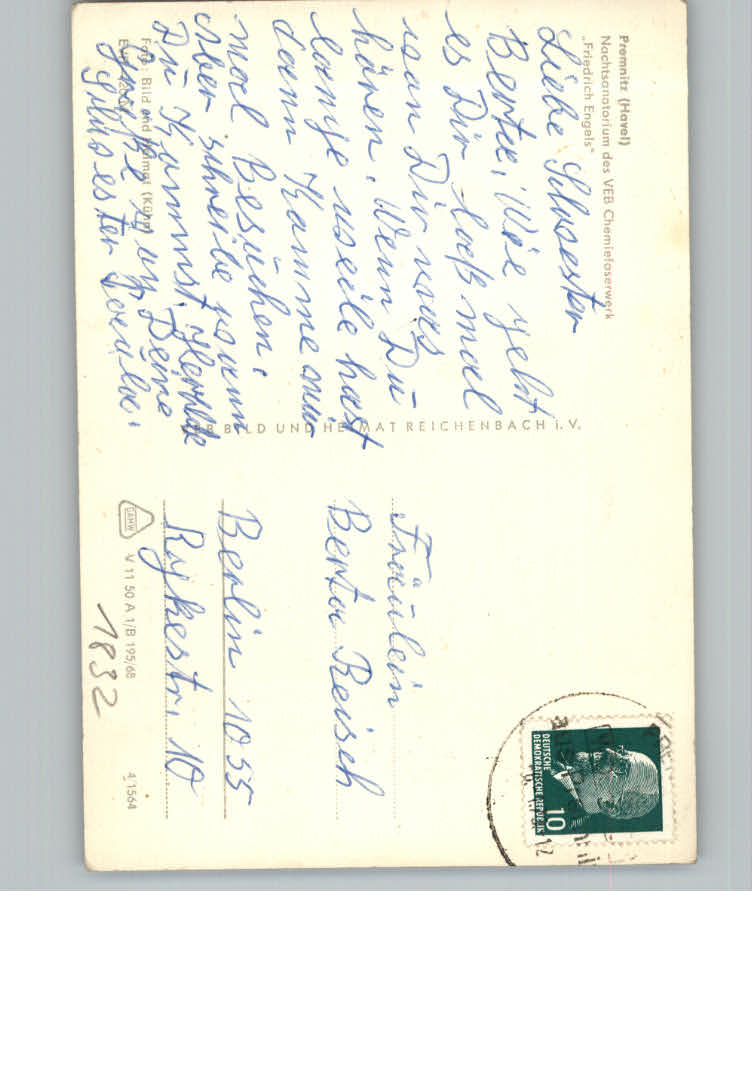 Premnitz (Havel)
Nachtsanatorium des VEB Chemiefaserwerk
„Friedrich Engels"
Liebe Schwester
Berta, Wie geht
es Dir laß mal
von Dir was
hören. Wenn Du
lange weile hast
dann Komme mir
mal Besuchen.
aber schreibe wann
Du Kommst. Herzlich
Grüße
Deine
Schwester
Foto: Bild und Heimat (Kühn)
VEB BILD UND HEIMAT REICHENBACH i. V.
Fräulein
Berta Reisch
Berlin 1055
Rykestr. 10
DEUTSCHE
DEMOKRATISCHE REPUBLIK
10
V 11 50 A 1/B 195/68
4/1564
1832